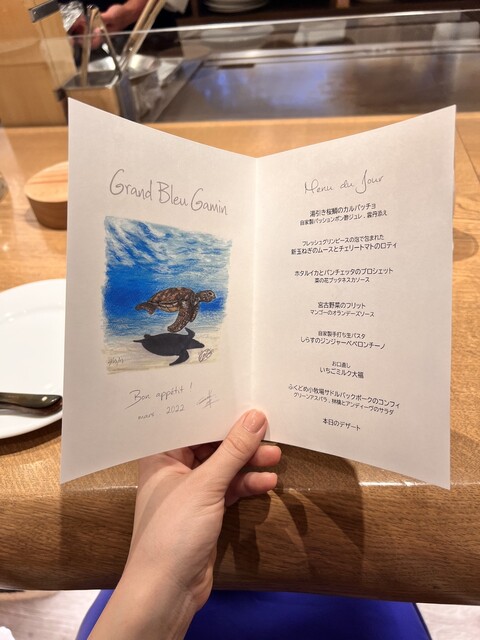 Grand Bleu Gamin
Bon appétit !
mars 2022
Menu du Jour
湯引き桜鯛のカルパッチョ
自家製パッションポン酢ジュレ、雲丹添え
フレッシュグリンピースの泡で包まれた
新玉ねぎのムースとチェリートマトのロティ
ホタルイカとパンチェッタのブロシェット
菜の花プッタネスカソース
宮古野菜のフリット
マンゴーのオランデーズソース
自家製手打ち生パスタ
しらすのジンジャーペペロンチーノ
お口直し
いちごミルク大福
ふくどめ小牧場サドルバックポークのコンフィ
グリーンアスパラ、林檎とアンディーヴのサラダ
本日のデザート